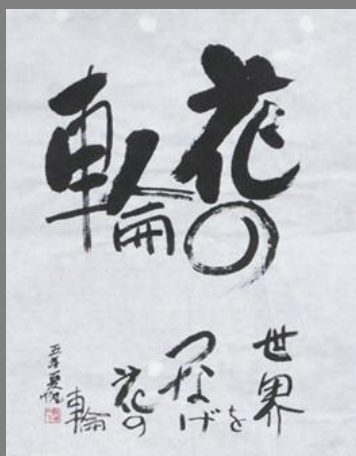 花の
輪
世界を
つなげ
花の
輪
五年夏